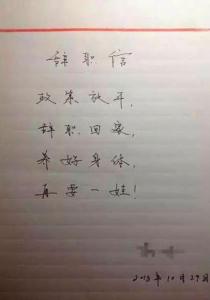 辞职信
政策放开，
辞职回家，
养好身体，
再要一娃！
2015年10月29日